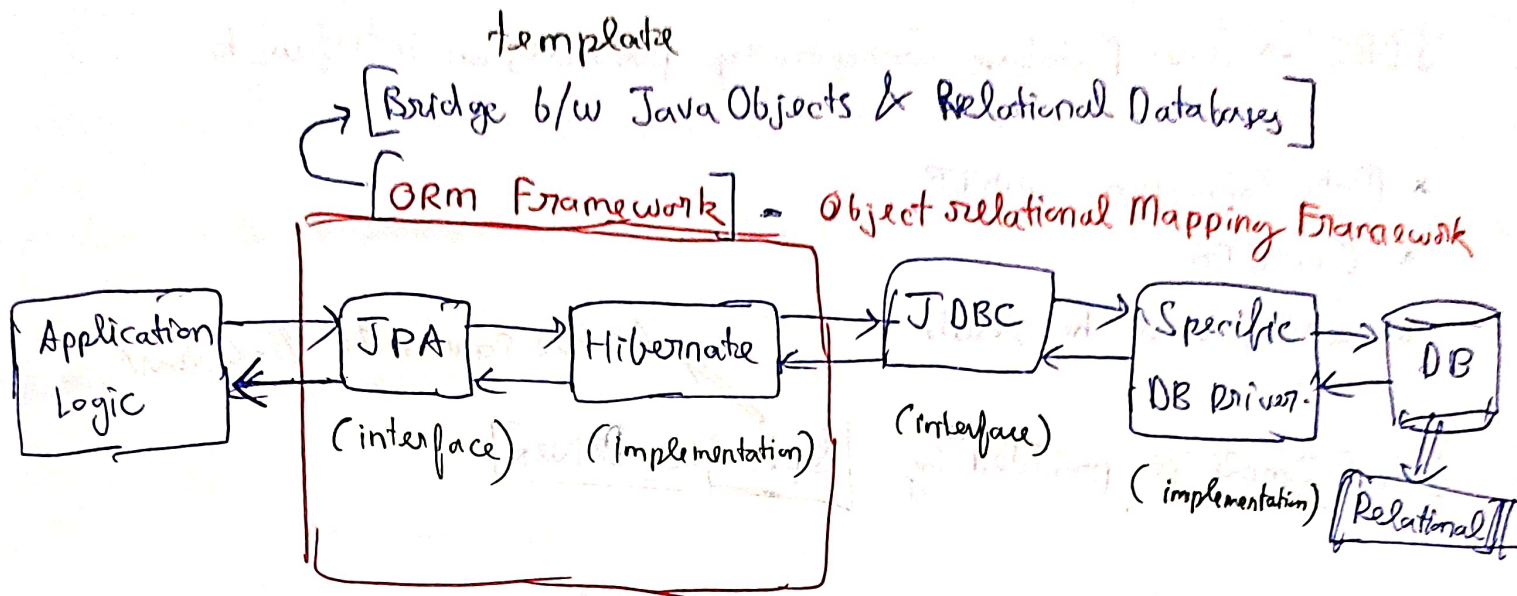 template
[Bridge b/w Java Objects & Relational Databases]
[ORM Framework] - Object relational Mapping Framework
Application
Logic
JPA
(interface)
Hibernate
(implementation)
JDBC
(interface)
Specific
DB Driver.
(implementation)
DB
Relational